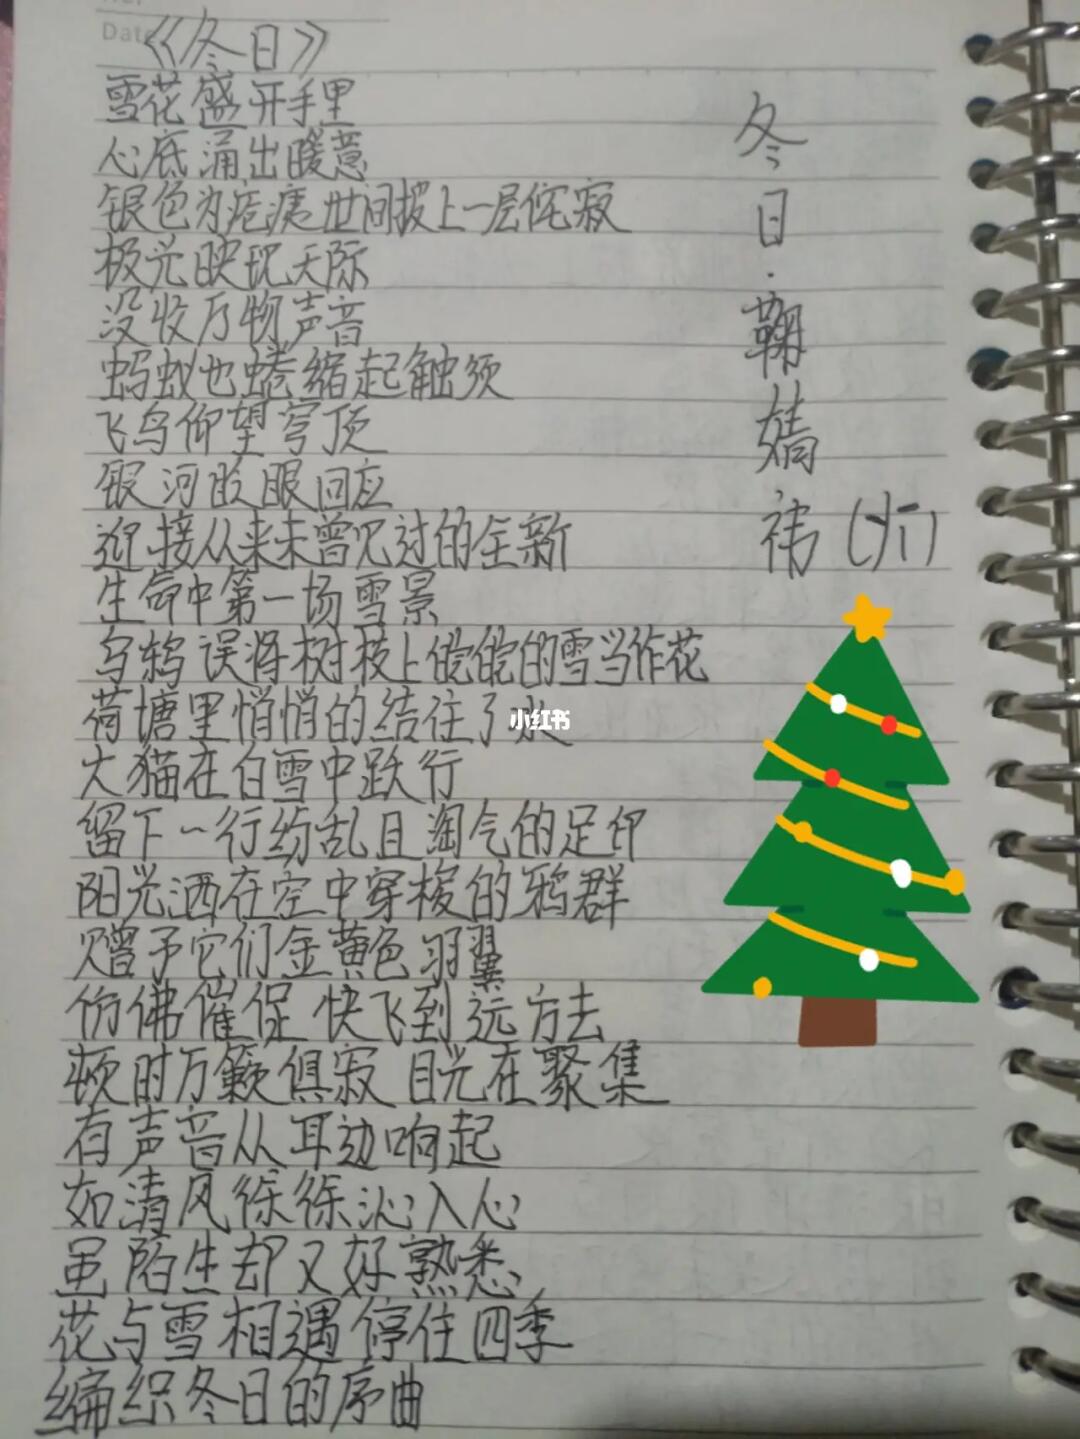 Date
《冬日》
雪花盛开手里
心底涌出暖意
银色为疮痍世间披上一层侘寂
极光映现天际
没收万物声音
蚂蚁也蜷缩起触须
飞鸟仰望穹顶
银河眨眼回应
迎接从来未曾见过的全新
生命中第一场雪景
乌鸦误将树枝上皑皑的雪当作花
荷塘里悄悄的结住了冰
大猫在白雪中跌行
留下一行纷乱且淘气的足印
阳光洒在空中穿梭的鸦群
赠予它们金黄色羽翼
仿佛催促 快飞到远方去
顿时万籁俱寂 目光在聚集
有声音从耳边响起
如清风徐徐沁入心
虽陌生却又好熟悉
花与雪相遇 停住四季
编织冬日的序曲
冬日·鞠婧祎
小红书